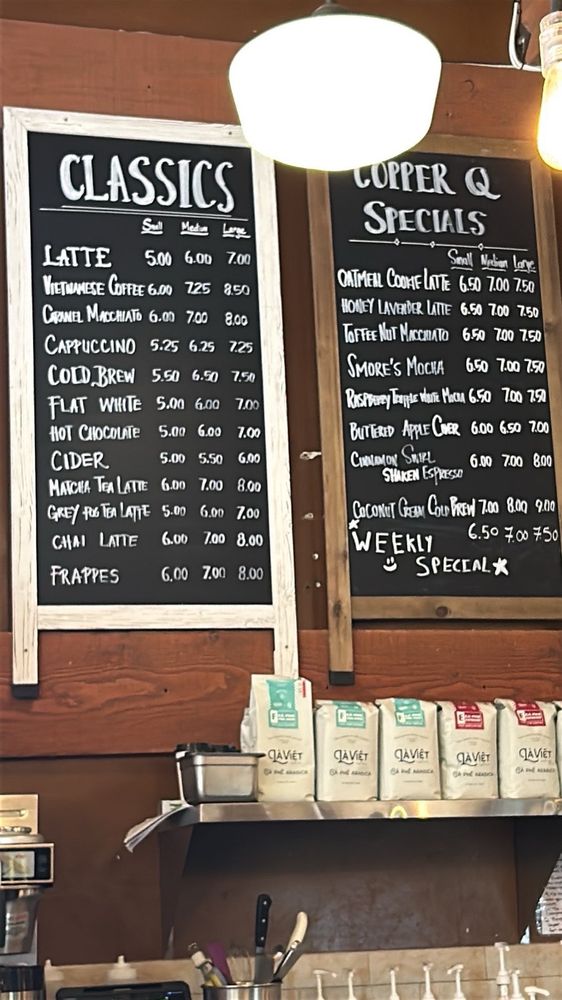 CLASSICS
Small Medium Large
LATTE 5.00 6.00 7.00
VIETNAMESE COFFEE 6.00 7.25 8.50
CARAMEL MACCHIATO 6.00 7.00 8.00
CAPPUCCINO 5.25 6.25 7.25
COLD BREW 5.50 6.50 7.50
FLAT WHITE 5.00 6.00 7.00
HOT CHOCOLATE 5.00 6.00 7.00
CIDER 5.00 5.50 6.00
MATCHA TEA LATTE 6.00 7.00 8.00
GREY FOG TEA LATTE 5.00 6.00 7.00
CHAI LATTE 6.00 7.00 8.00
FRAPPES 6.00 7.00 8.00
COPPER Q
SPECIALS
Small Medium Large
OATMEAL COOKIE LATTE 6.50 7.00 7.50
HONEY LAVENDER LATTE 6.50 7.00 7.50
TOFFEE NUT MACCHIATO 6.50 7.00 7.50
SMORE'S MOCHA 6.50 7.00 7.50
RASPBERRY TRUFFLE WHITE MOCHA 6.50 7.00 7.50
BUTTERED APPLE CIDER 6.00 6.50 7.00
CINNAMON SWIRL 6.00 7.00 8.00
SHAKEN ESPRESSO
COCONUT CREAM COLD BREW 7.00 8.00 9.00
WEEKLY 6.50 7.00 7.50
SPECIAL
LÀVIỆT
CÀ PHÊ ARABICA
LÀVIỆT
CÀ PHÊ ARABICA
LÀVIỆT
CÀ PHÊ ARABICA
LÀVIỆT
CÀ PHÊ ARABICA
LÀVIỆT
CÀ PHÊ ARABICA